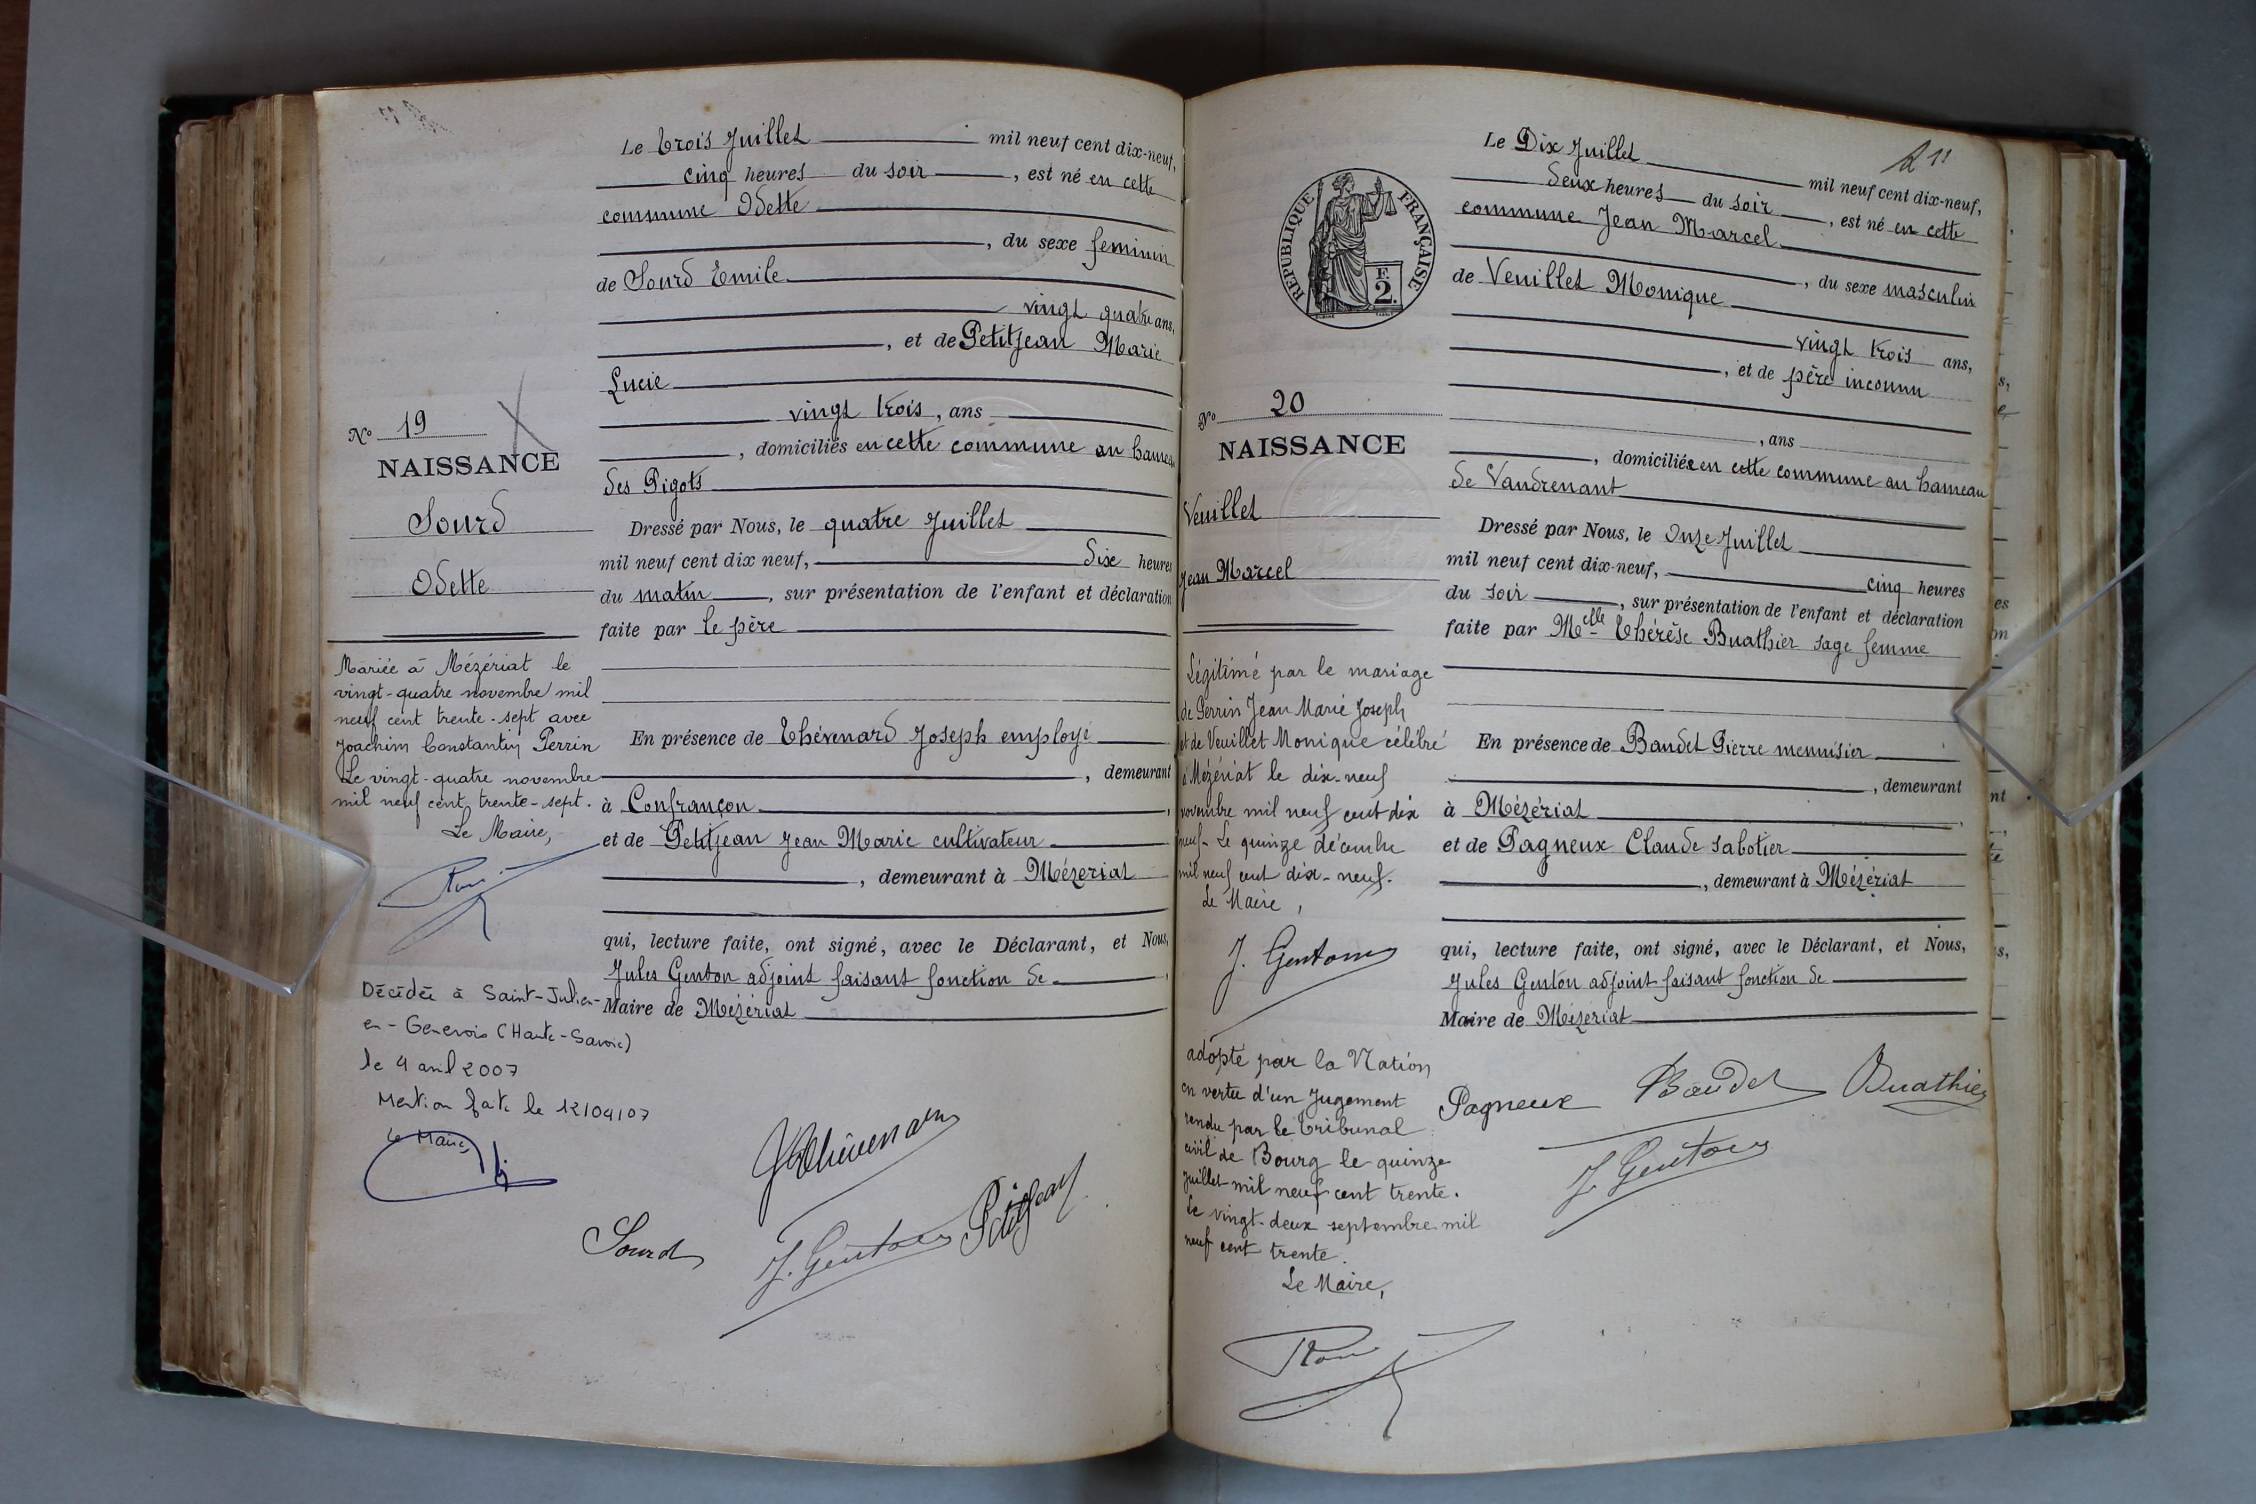 Le trois Juillet mil neuf cent dix-neuf,
cinq heures du soir, est né en cette
commune Odette
, du sexe feminin
de Sourd Emile
vingt quatre ans,
, et de Petitjean Marie
Lucie
vingt trois, ans
, domiciliés en cette commune au hameau
des Pigots
Dressé par Nous, le quatre Juillet
mil neuf cent dix neuf, dix heures
du matin, sur présentation de l'enfant et déclaration
faite par le père
En présence de Thévenard Joseph employé
, demeurant
à Confrançon,
et de Petitjean Jean Marie cultivateur
, demeurant à Mézeriat
qui, lecture faite, ont signé, avec le Déclarant, et Nous,
Jules Genton adjoint faisant fonction de
Maire de Mézériat
No 19
NAISSANCE
Sourd
Odette
Mariée à Mézériat le
vingt-quatre novembre mil
neuf cent trente-sept avec
Joachim Constantin Perrin
Le vingt-quatre novembre
mil neuf cent trente-sept.
Le Maire,
Décédée à Saint-Julien-
en-Genevois (Haute-Savoie)
le 4 avril 2007
Mention faite le 12/04/07
Le Maire,
JThévenard
Sourd
J. Genton
Petitjean
211
Le Dix Juillet mil neuf cent dix-neuf,
deux heures du soir, est né en cette
commune Jean Marcel
, du sexe masculin
de Veuillet Monique
vingt trois ans,
, et de père inconnu
, ans
, domiciliée en cette commune au hameau
de Vandrenant
Dressé par Nous, le Onze Juillet
mil neuf cent dix-neuf, cinq heures
du soir, sur présentation de l'enfant et déclaration
faite par Melle Thérèse Buathier sage femme
En présence de Baudet Pierre menuisier
, demeurant
à Mézériat,
et de Pagneux Claude sabotier
, demeurant à Mézériat
qui, lecture faite, ont signé, avec le Déclarant, et Nous,
Jules Genton adjoint faisant fonction de
Maire de Mézériat
RÉPUBLIQUE FRANÇAISE
F.
2.
No 20
NAISSANCE
Veuillet
Jean Marcel
Légitimé par le mariage
de Perrin Jean Marie Joseph
et de Veuillet Monique célébré
à Mézériat le dix-neuf
novembre mil neuf cent dix
neuf. Le quinze décembre
mil neuf cent dix-neuf.
Le Maire,
J. Genton
adopté par la Nation
en vertu d'un Jugement
rendu par le Tribunal
civil de Bourg le quinze
Juillet mil neuf cent trente.
Le vingt-deux septembre mil
neuf cent trente.
Le Maire,
Pagneux Baudet Buathier
J. Genton